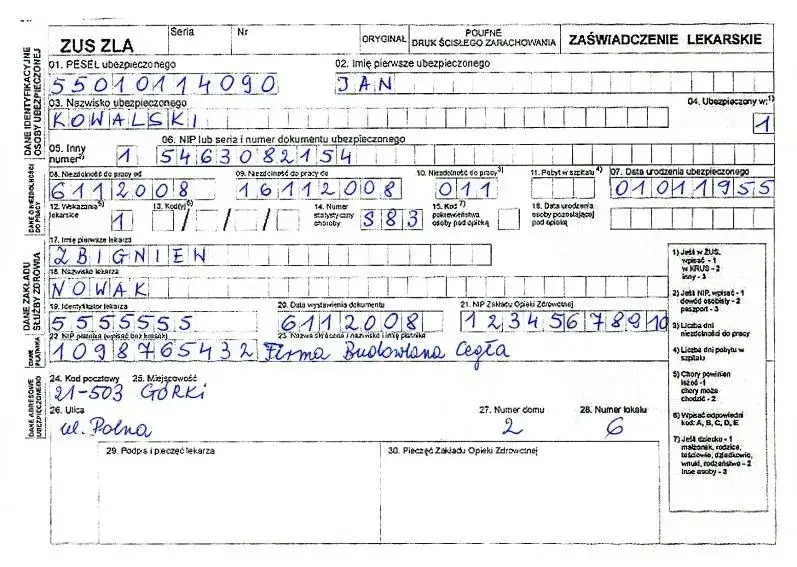 ZUS ZLA Seria Nr ORYGINAŁ POUFNE DRUK ŚCISŁEGO ZARACHOWANIA ZAŚWIADCZENIE LEKARSKIE
01. PESEL ubezpieczonego 02. Imię pierwsze ubezpieczonego
55010114090 JAN
03. Nazwisko ubezpieczonego 04. Ubezpieczony w:1)
KOWALSKI 1
06. NIP lub seria i numer dokumentu ubezpieczonego
05. Inny numer2) 1 5463082154
08. Niezdolność do pracy od 09. Niezdolność do pracy do 10. Niezdolność do pracy3) 11. Pobyt w szpitalu4) 07. Data urodzenia ubezpieczonego
6112008 16112008 011 01011955
12. Wskazania5) lekarskie 1 13. Kod(y)6) / / / 14. Numer statystyczny choroby S83 15. Kod7) pokrewieństwa osoby pod opieką 16. Data urodzenia osoby pozostającej pod opieką
17. Imię pierwsze lekarza
ZBIGNIEW
18. Nazwisko lekarza
NOWAK
19. Identyfikator lekarza 20. Data wystawienia dokumentu 21. NIP Zakładu Opieki Zdrowotnej
5555555 6112008 12345678910
22. NIP płatnika (wpisać bez kresek) 23. Nazwa skrócona / nazwisko i imię płatnika
1098765432 Firma Budowlana Cegła
24. Kod pocztowy 25. Miejscowość
21-503 GÓRKI
26. Ulica 27. Numer domu 28. Numer lokalu
ul. Polna 2 6
29. Podpis i pieczęć lekarza 30. Pieczęć Zakładu Opieki Zdrowotnej
DANE IDENTYFIKACYJNE OSOBY UBEZPIECZONEJ
DANE O NIEZDOLNOŚCI DO PRACY
DANE ZAKŁADU SŁUŻBY ZDROWIA
DANE PŁATNIKA
DANE ADRESOWE UBEZPIECZONEGO
1) Jeśli w ZUS,
wpisać - 1
w KRUS - 2
inny - 3
2) Jeśli NIP, wpisać - 1
dowód osobisty - 2
paszport - 3
3) Liczba dni
niezdolności do pracy
4) Liczba dni pobytu w
szpitalu
5) Chory powinien
leżeć -1
chory może
chodzić - 2
6) Wpisać odpowiedni
kod: A, B, C, D, E
7) Jeśli dziecko - 1
małżonek, rodzice,
teściowie, dziadkowie,
wnuki, rodzeństwo - 2
inne osoby - 3